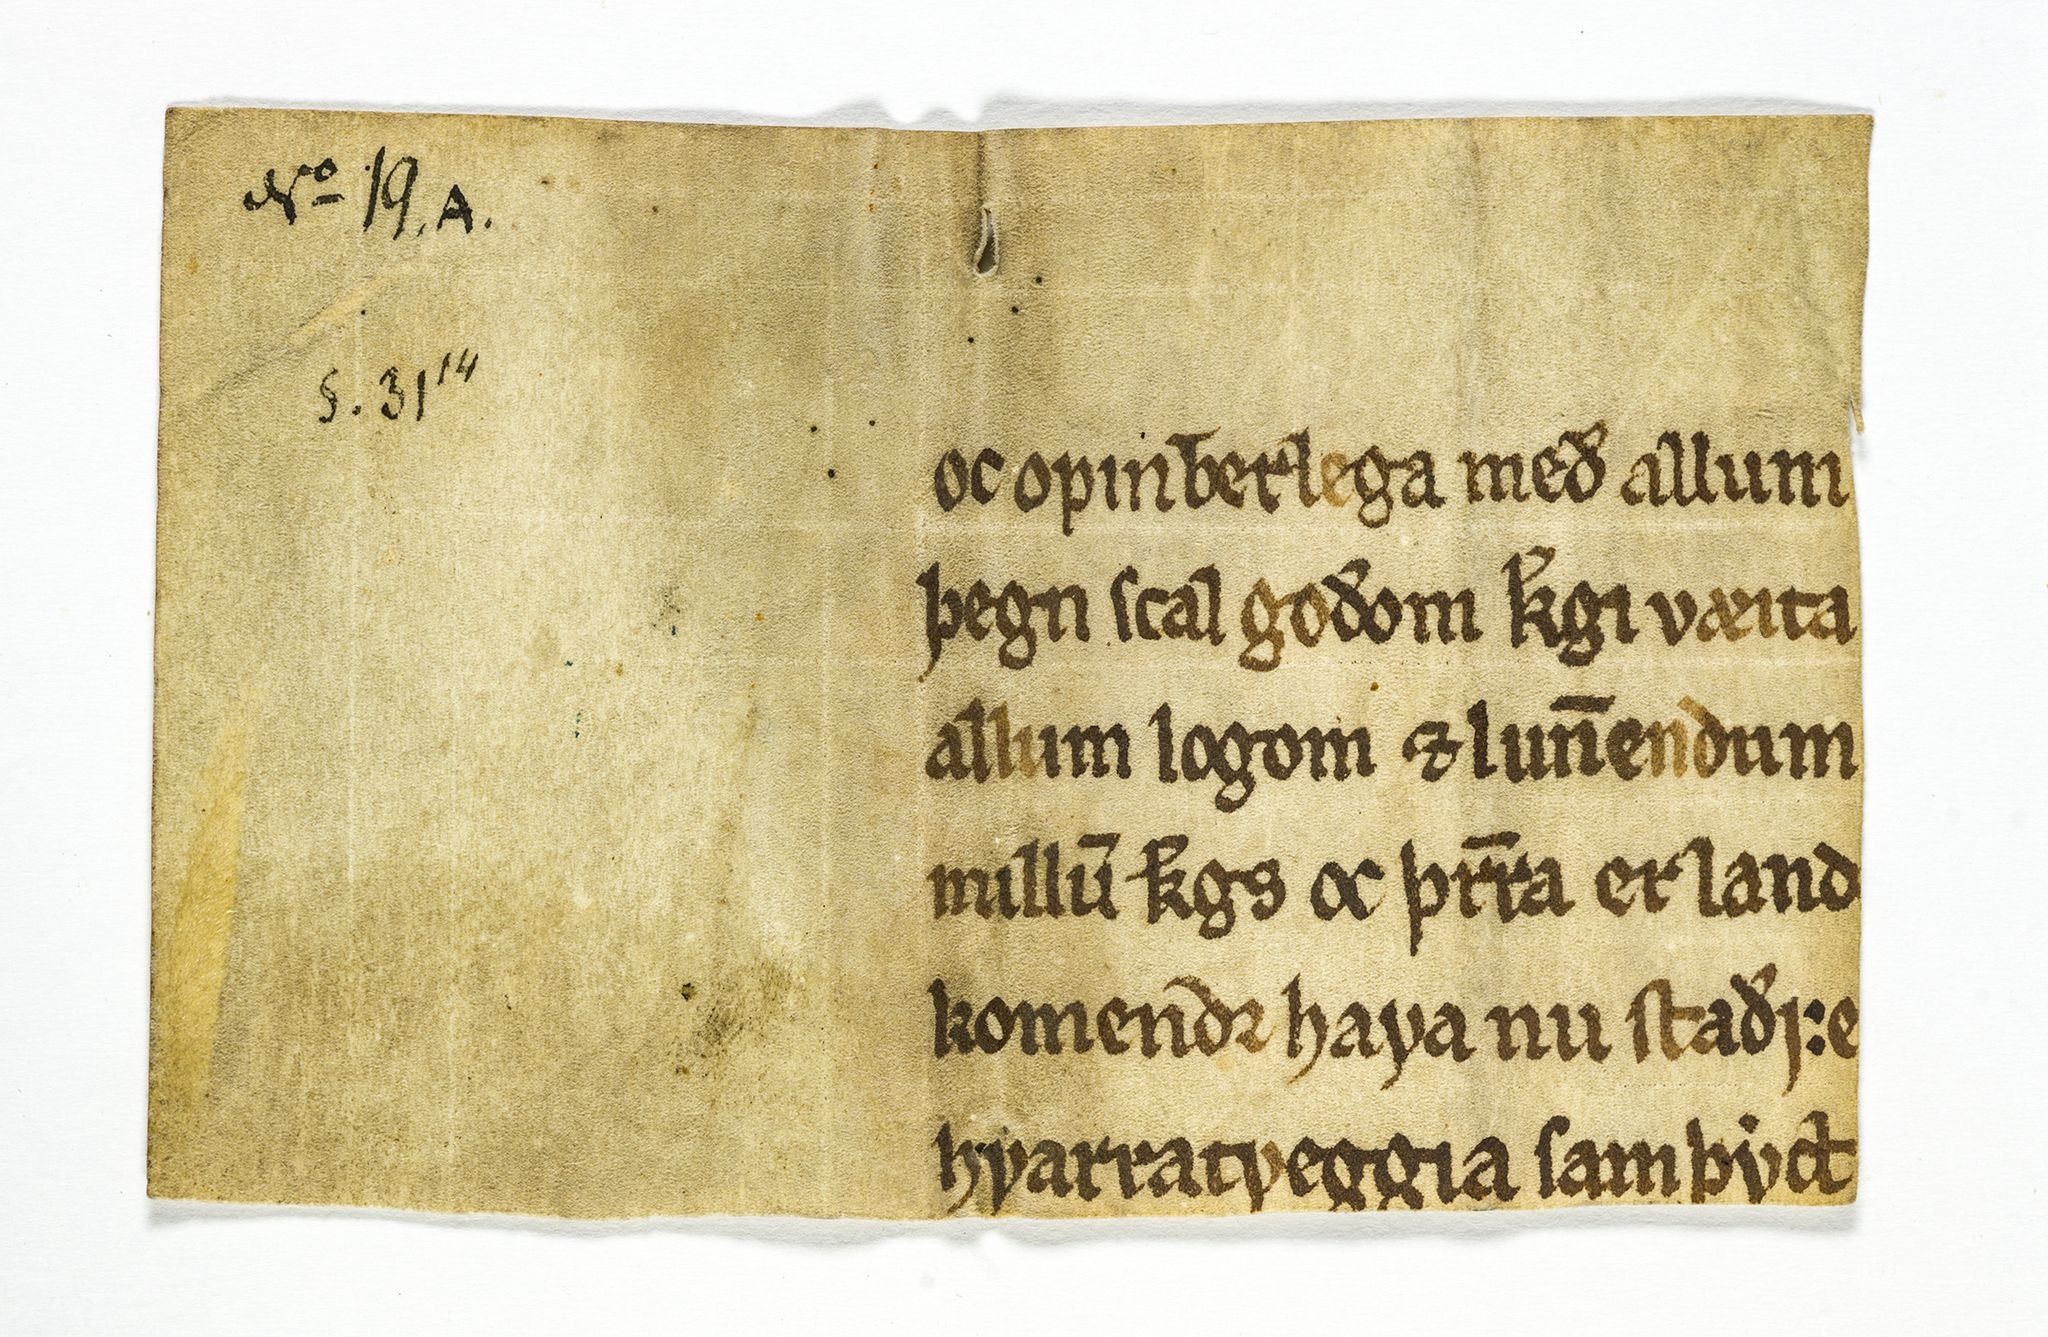 No 19. A.
§. 31 14
oc opinberlega með allum
þegn scal goðom kͬgi væita
allum logom ⁊ lun̅endum
millu̅ k̅gs oc þr̅ra er land
komendꝛ haꝼa nu staðꝼ:e
hꝩarratꝩeggia samþẏct